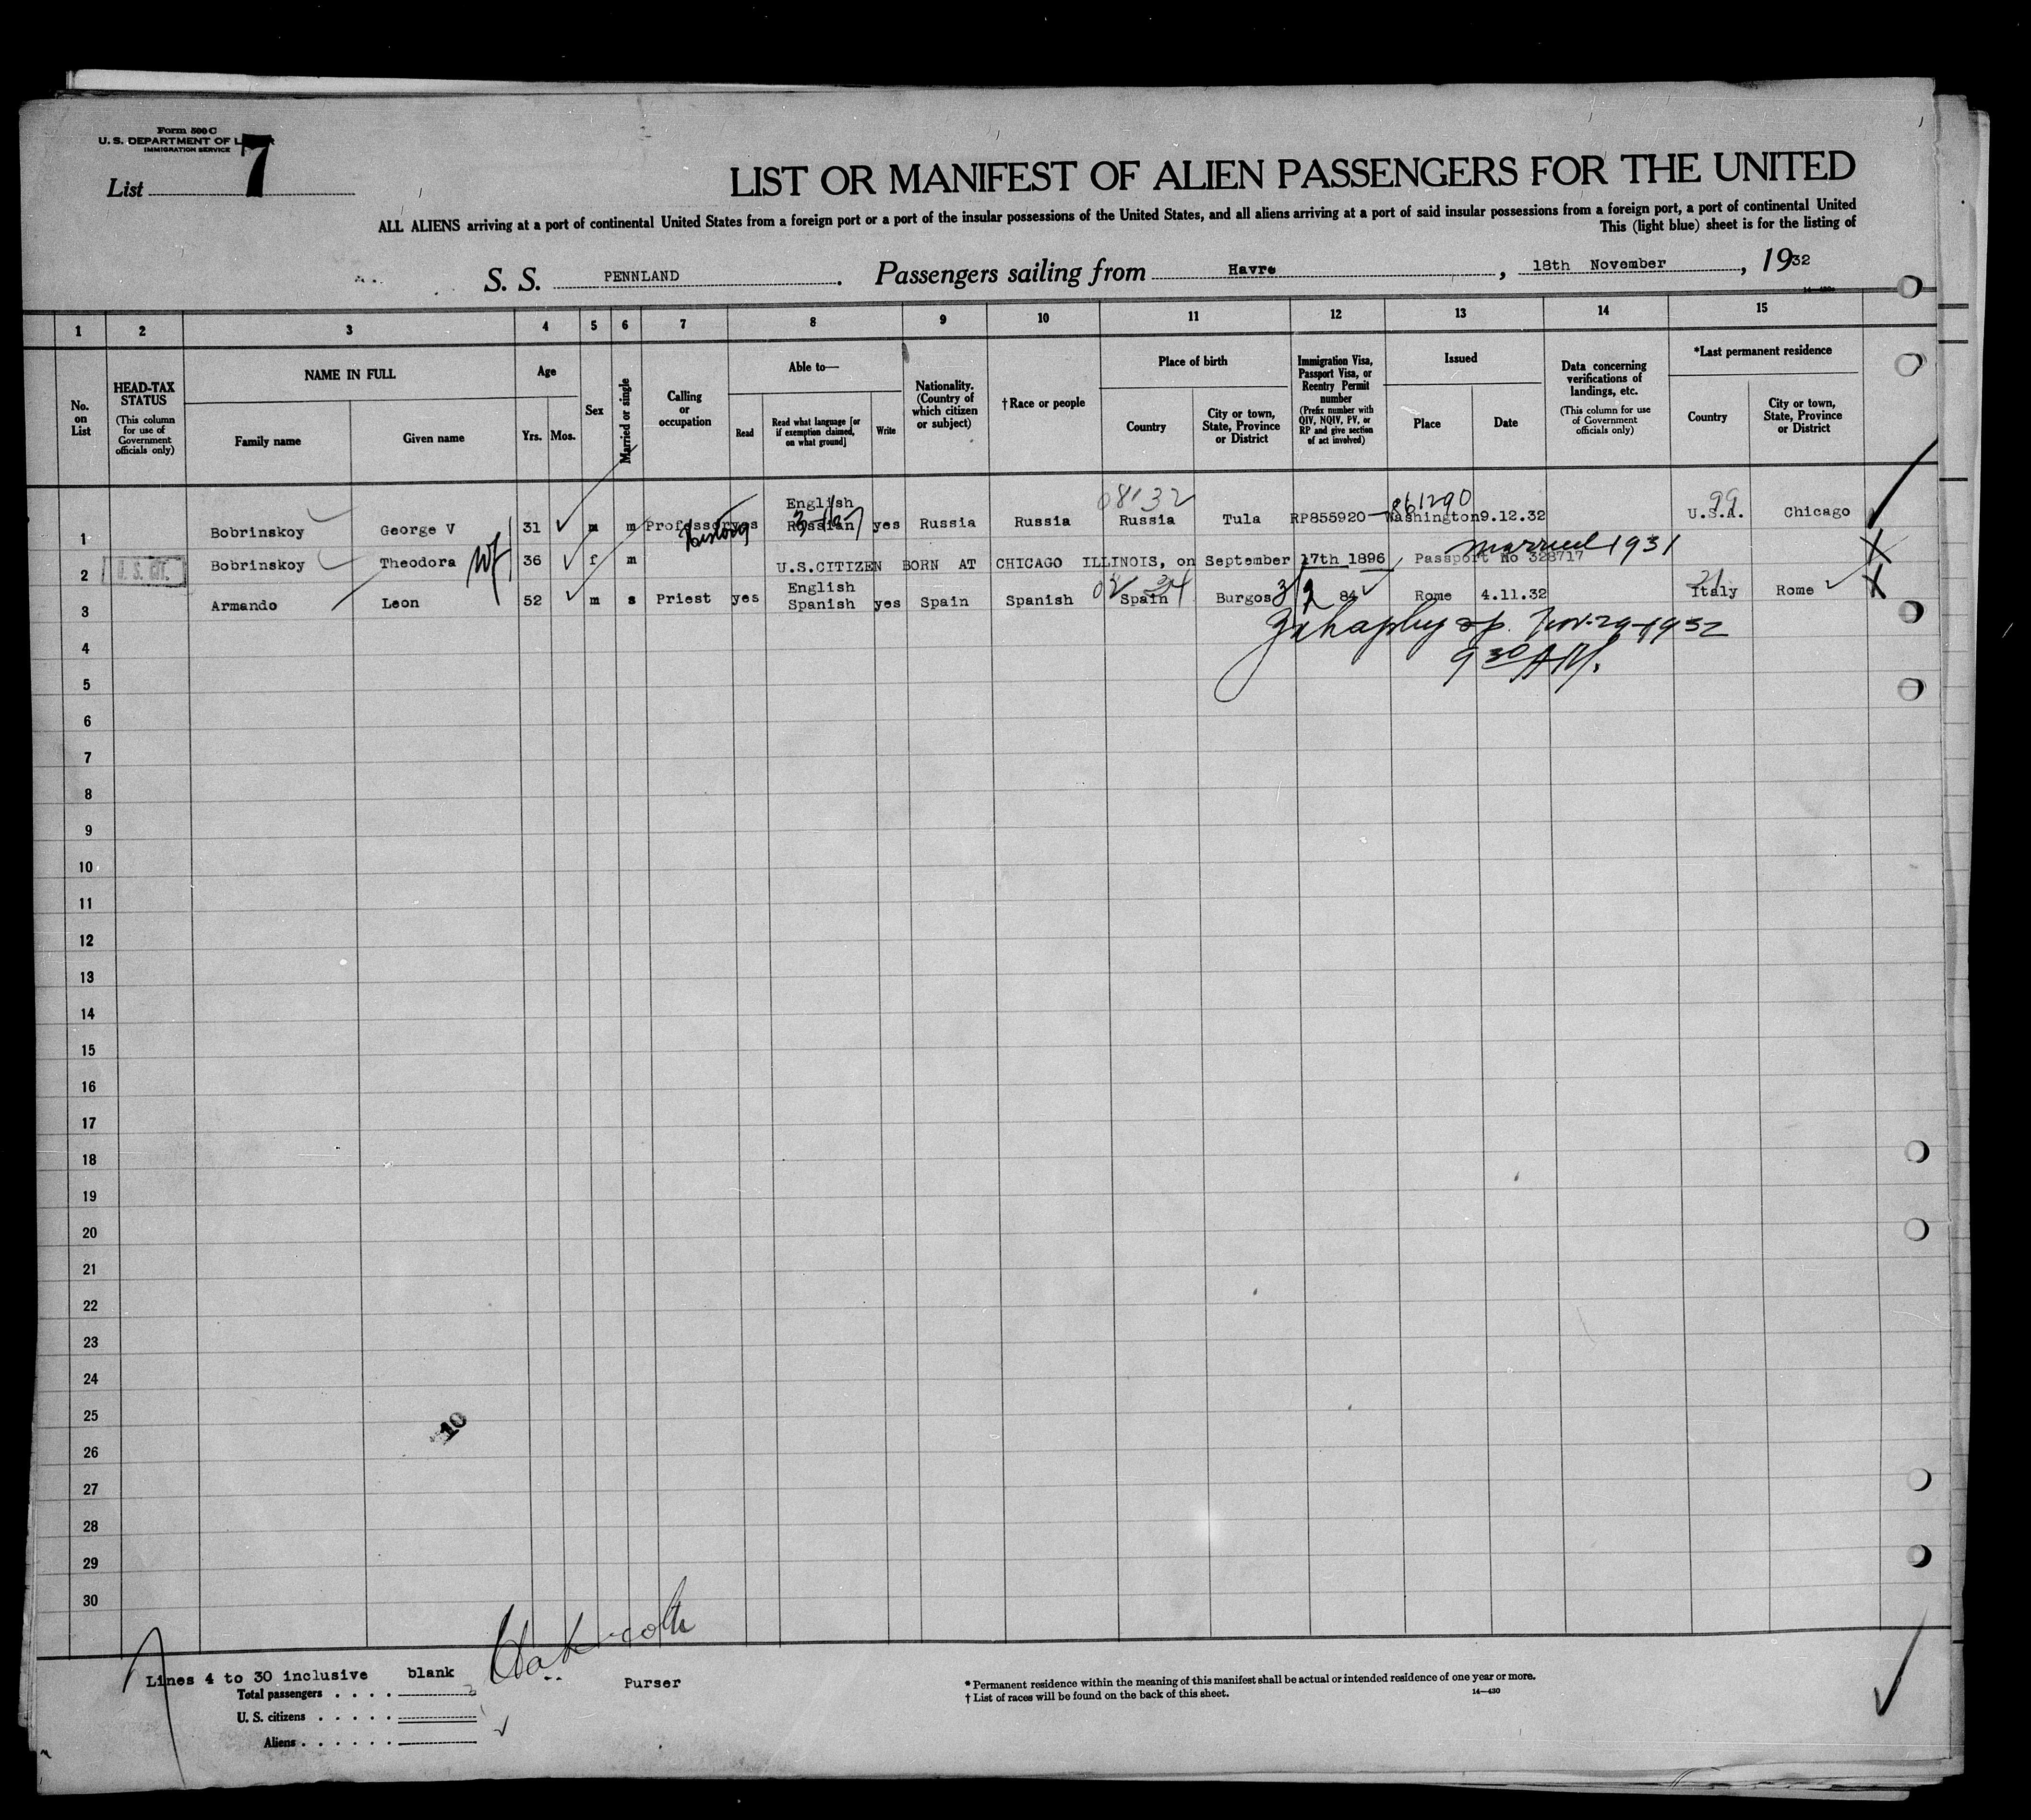 Form 500 C
U. S. DEPARTMENT OF
IMMIGRATION SERVICE
List 7
LIST OR MANIFEST OF ALIEN PASSENGERS FOR THE UNITED
ALL ALIENS arriving at a port of continental United States from a foreign port or a port of the insular possessions of the United States, and all aliens arriving at a port of said insular possessions from a foreign port, a port of continental United
This (light blue) sheet is for the listing of
S. S. PENNLAND. Passengers sailing from Havre, 18th November, 1932
1 2 3 4 5 6 7 8 9 10 11 12 13 14 15
No. on List
HEAD-TAX STATUS
(This column for use of Government officials only)
NAME IN FULL
Family name
Given name
Age
Yrs. Mos.
Sex
Married or single
Calling or occupation
Able to—
Read
Read what language [or if exemption claimed, on what ground]
Write
Nationality. (Country of which citizen or subject)
†Race or people
Place of birth
Country
City or town, State, Province or District
Immigration Visa, Passport Visa, or Reentry Permit number
(Prefix number with QIV, NQIV, PV, or RP and give section of act involved)
Issued
Place
Date
Data concerning verifications of landings, etc.
(This column for use of Government officials only)
*Last permanent residence
Country
City or town, State, Province or District
08132 861290 99
1 Bobrinskoy George V 31 m m Professor yes English Russian yes Russia Russia Russia Tula RP855920 Washington 9.12.32 U.S.A. Chicago
History
married 1931
2 U.S. CIT. Bobrinskoy Theodora wf 36 f m U.S.CITIZEN BORN AT CHICAGO ILLINOIS, on September 17th 1896 Passport No 328717
3 Armando Leon 52 m s Priest yes English Spanish yes Spain Spanish Spain Burgos 3/2 84 Rome 4.11.32 Italy Rome
Nov. 29-1932
4
9 30 AM.
5
6
7
8
9
10
11
12
13
14
15
16
17
18
19
20
21
22
23
24
25
10
26
27
28
29
30
Lines 4 to 30 inclusive blank
Purser
Total passengers . . . . 3
U. S. citizens . . . . .
Aliens . . . . . .
* Permanent residence within the meaning of this manifest shall be actual or intended residence of one year or more.
† List of races will be found on the back of this sheet.
14—430